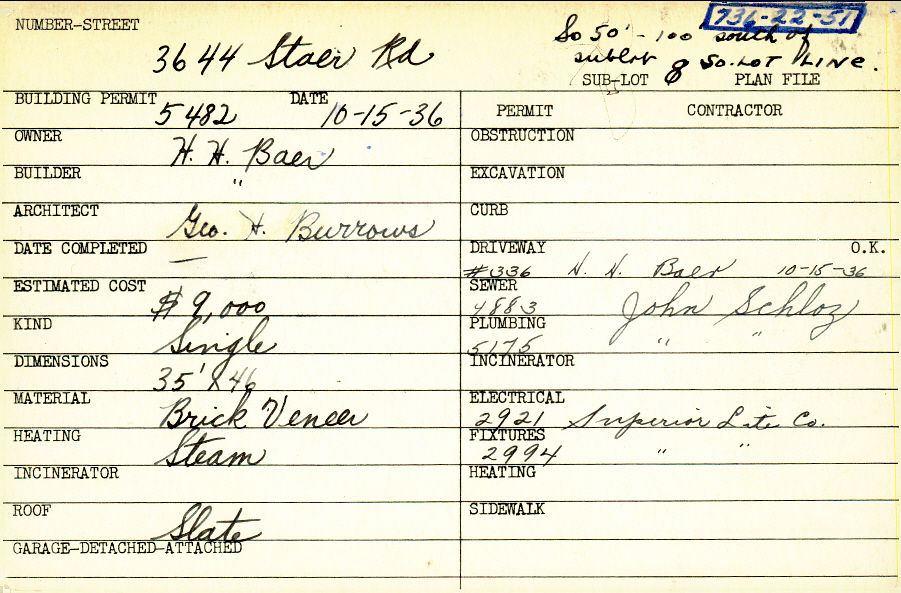 NUMBER-STREET
3644 Staer Rd
736-22-51
So 50' - 100' south of
sublot & SO. LOT LINE.
SUB-LOT PLAN FILE
BUILDING PERMIT 5482 DATE 10-15-36
OWNER H. H. Baer
BUILDER "
ARCHITECT Geo. H. Burrows
DATE COMPLETED —
ESTIMATED COST $9,000
KIND Single
DIMENSIONS 35' X 46
MATERIAL Brick Veneer
HEATING Steam
INCINERATOR
ROOF Slate
GARAGE-DETACHED-ATTACHED
PERMIT CONTRACTOR
OBSTRUCTION
EXCAVATION
CURB
DRIVEWAY O.K.
#336 H. H. Baer 10-15-36
SEWER
4883 John Schloz
PLUMBING
5175 " "
INCINERATOR
ELECTRICAL
2921 Superior Lite Co.
FIXTURES
2994 " "
HEATING
SIDEWALK